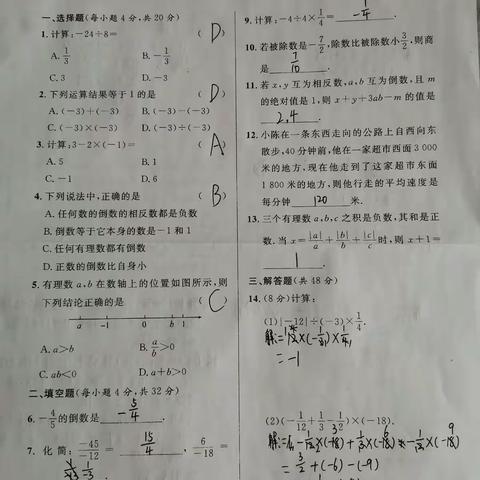 一、选择题(每小题 4 分,共 20 分)
1. 计算:-24÷8= ( D )
A. 1/3 B. -1/3
C. 3 D. -3
2. 下列运算结果等于 1 的是 ( D )
A. (-3)+(-3) B. (-3)-(-3)
C. (-3)×(-3) D. (-3)÷(-3)
3. 计算:3-2×(-1)= ( A )
A. 5 B. 1
C. -1 D. 6
4. 下列说法中,正确的是 ( B )
A. 任何数的倒数的相反数都是负数
B. 倒数等于它本身的数是-1 和 1
C. 任何有理数都有倒数
D. 正数的倒数比自身小
5. 有理数 a,b 在数轴上的位置如图所示,则
下列结论正确的是 ( C )
a -1 0 b 1
A. a>b B. a/b>0
C. ab<0 D. a+b>0
二、填空题(每小题 4 分,共 32 分)
6. -4/5的倒数是 -5/4 .
7. 化简: -45/-12 = 15/4 , 6/-18 =
9. 计算:-4÷4×1/4= -1/4 .
10. 若被除数是-7/2,除数比被除数小3/2,则商
是 7/10 .
11. 若 x,y 互为相反数,a,b 互为倒数,且 m
的绝对值是 1,则 x+y+3ab-m 的值是
2,4 .
12. 小陈在一条东西走向的公路上自西向东
散步,40 分钟前,他在一家超市西面 3 000
米的地方,现在他走到了这家超市东面
1 800 米的地方,则他行走的平均速度是
每分钟 120 米.
13. 三个有理数 a,b,c 之积是负数,其和是正
数. 当 x=|a|/a+|b|/b+|c|/c时,则 x+1=
1 .
三、解答题(共 48 分)
14. (8 分)计算:
(1)|-12|÷(-3)×1/4.
=-1
(2)(-1/12+1/3-1/2)×(-18).
=3/2+(-6)-(-9)